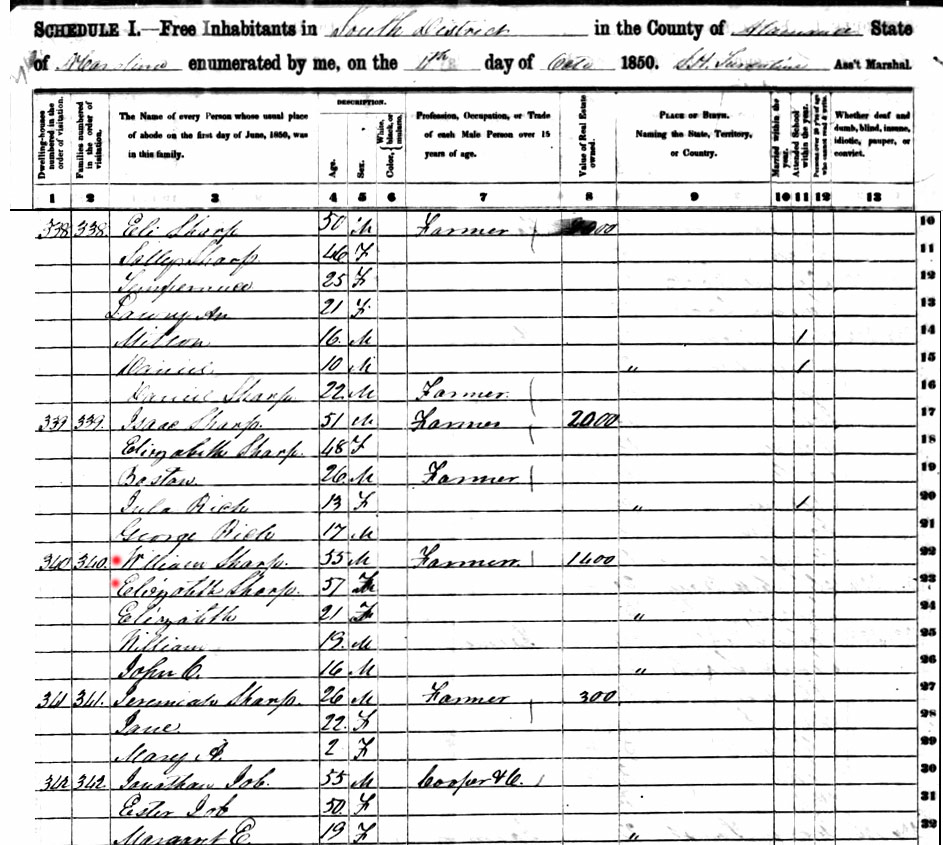 SCHEDULE I.—Free Inhabitants in South District in the County of Alamance State
of N Carolina enumerated by me, on the 11th day of Octo 1850. Ass't Marshal.
Dwelling-houses numbered in the order of visitation.
Families numbered in the order of visitation.
The Name of every Person whose usual place of abode on the first day of June, 1850, was in this family.
DESCRIPTION.
Age.
Sex.
Color, White, black, or mulatto.
Profession, Occupation, or Trade of each Male Person over 15 years of age.
Value of Real Estate owned.
PLACE OF BIRTH. Naming the State, Territory, or Country.
Married within the year.
Attended School within the year.
Persons over 20 y'rs of age who cannot read & write.
Whether deaf and dumb, blind, insane, idiotic, pauper, or convict.
1 2 3 4 5 6 7 8 9 10 11 12 13
338 338 Eli Sharp 50 M Farmer 10
Sally Sharp 46 F 11
Temperance 25 F 12
An 21 F 13
Milton 16 M / 14
10 M " / 15
Daniel Sharp 22 M Farmer 16
339 339 Isaac Sharp 51 M Farmer 2000 17
Elizabeth Sharp 48 F 18
Boston 26 M Farmer 19
Rich 13 F " / 20
George Rich 17 M 21
340 340 William Sharp 55 M Farmer 1400 22
Elizabeth Sharp 57 F 23
Elizabeth 21 F " 24
William 19 M 25
John C. 16 M " 26
341 341 Jeremiah Sharp 26 M Farmer 300 27
Jane 22 F 28
Mary A. 2 F 29
342 342 Jonathan Job 55 M Cooper &C. 30
Ester Job 50 F 31
Margaret E. 19 F " 32